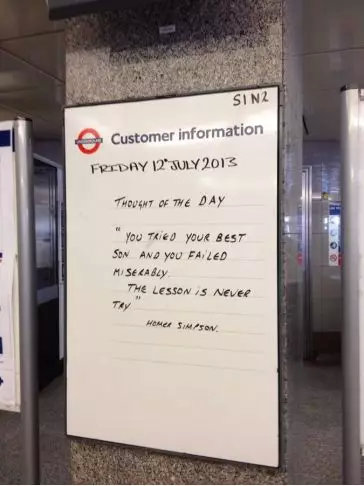 S1N2
UNDERGROUND
Customer information
FRIDAY 12TH JULY 2013
THOUGHT OF THE DAY
" YOU TRIED YOUR BEST
SON AND YOU FAILED
MISERABLY.
THE LESSON IS NEVER
TRY "
HOMER SIMPSON.